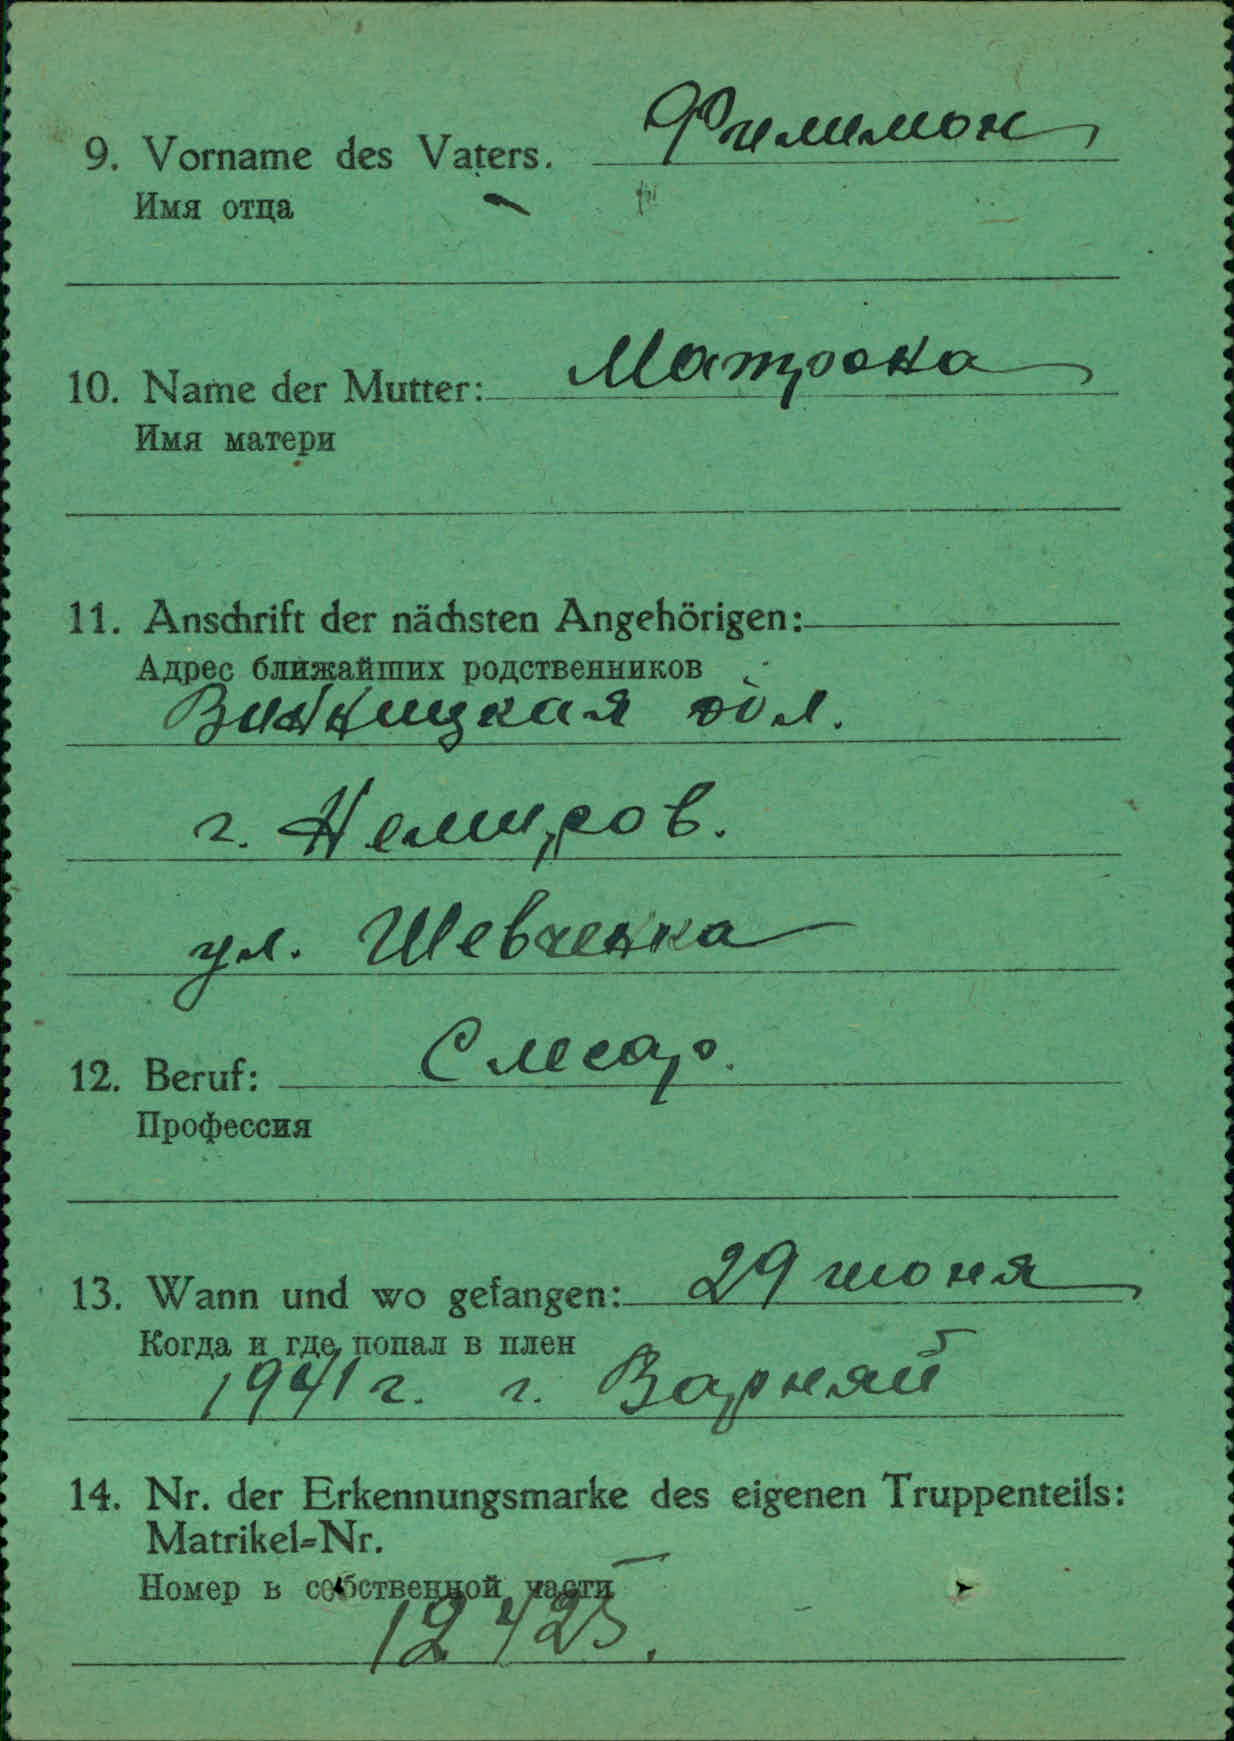 9. Vorname des Vaters. Филимон
Имя отца
10. Name der Mutter: Матрона
Имя матери
11. Anschrift der nächsten Angehörigen:
Адрес ближайших родственников
Винницкая обл.
г. Немиров.
ул. Шевченка
12. Beruf: Слесар.
Профессия
13. Wann und wo gefangen: 29 июня
Когда и где попал в плен
1941 г. г. Варняй
14. Nr. der Erkennungsmarke des eigenen Truppenteils:
Matrikel-Nr.
Номер в собственной части
12425.